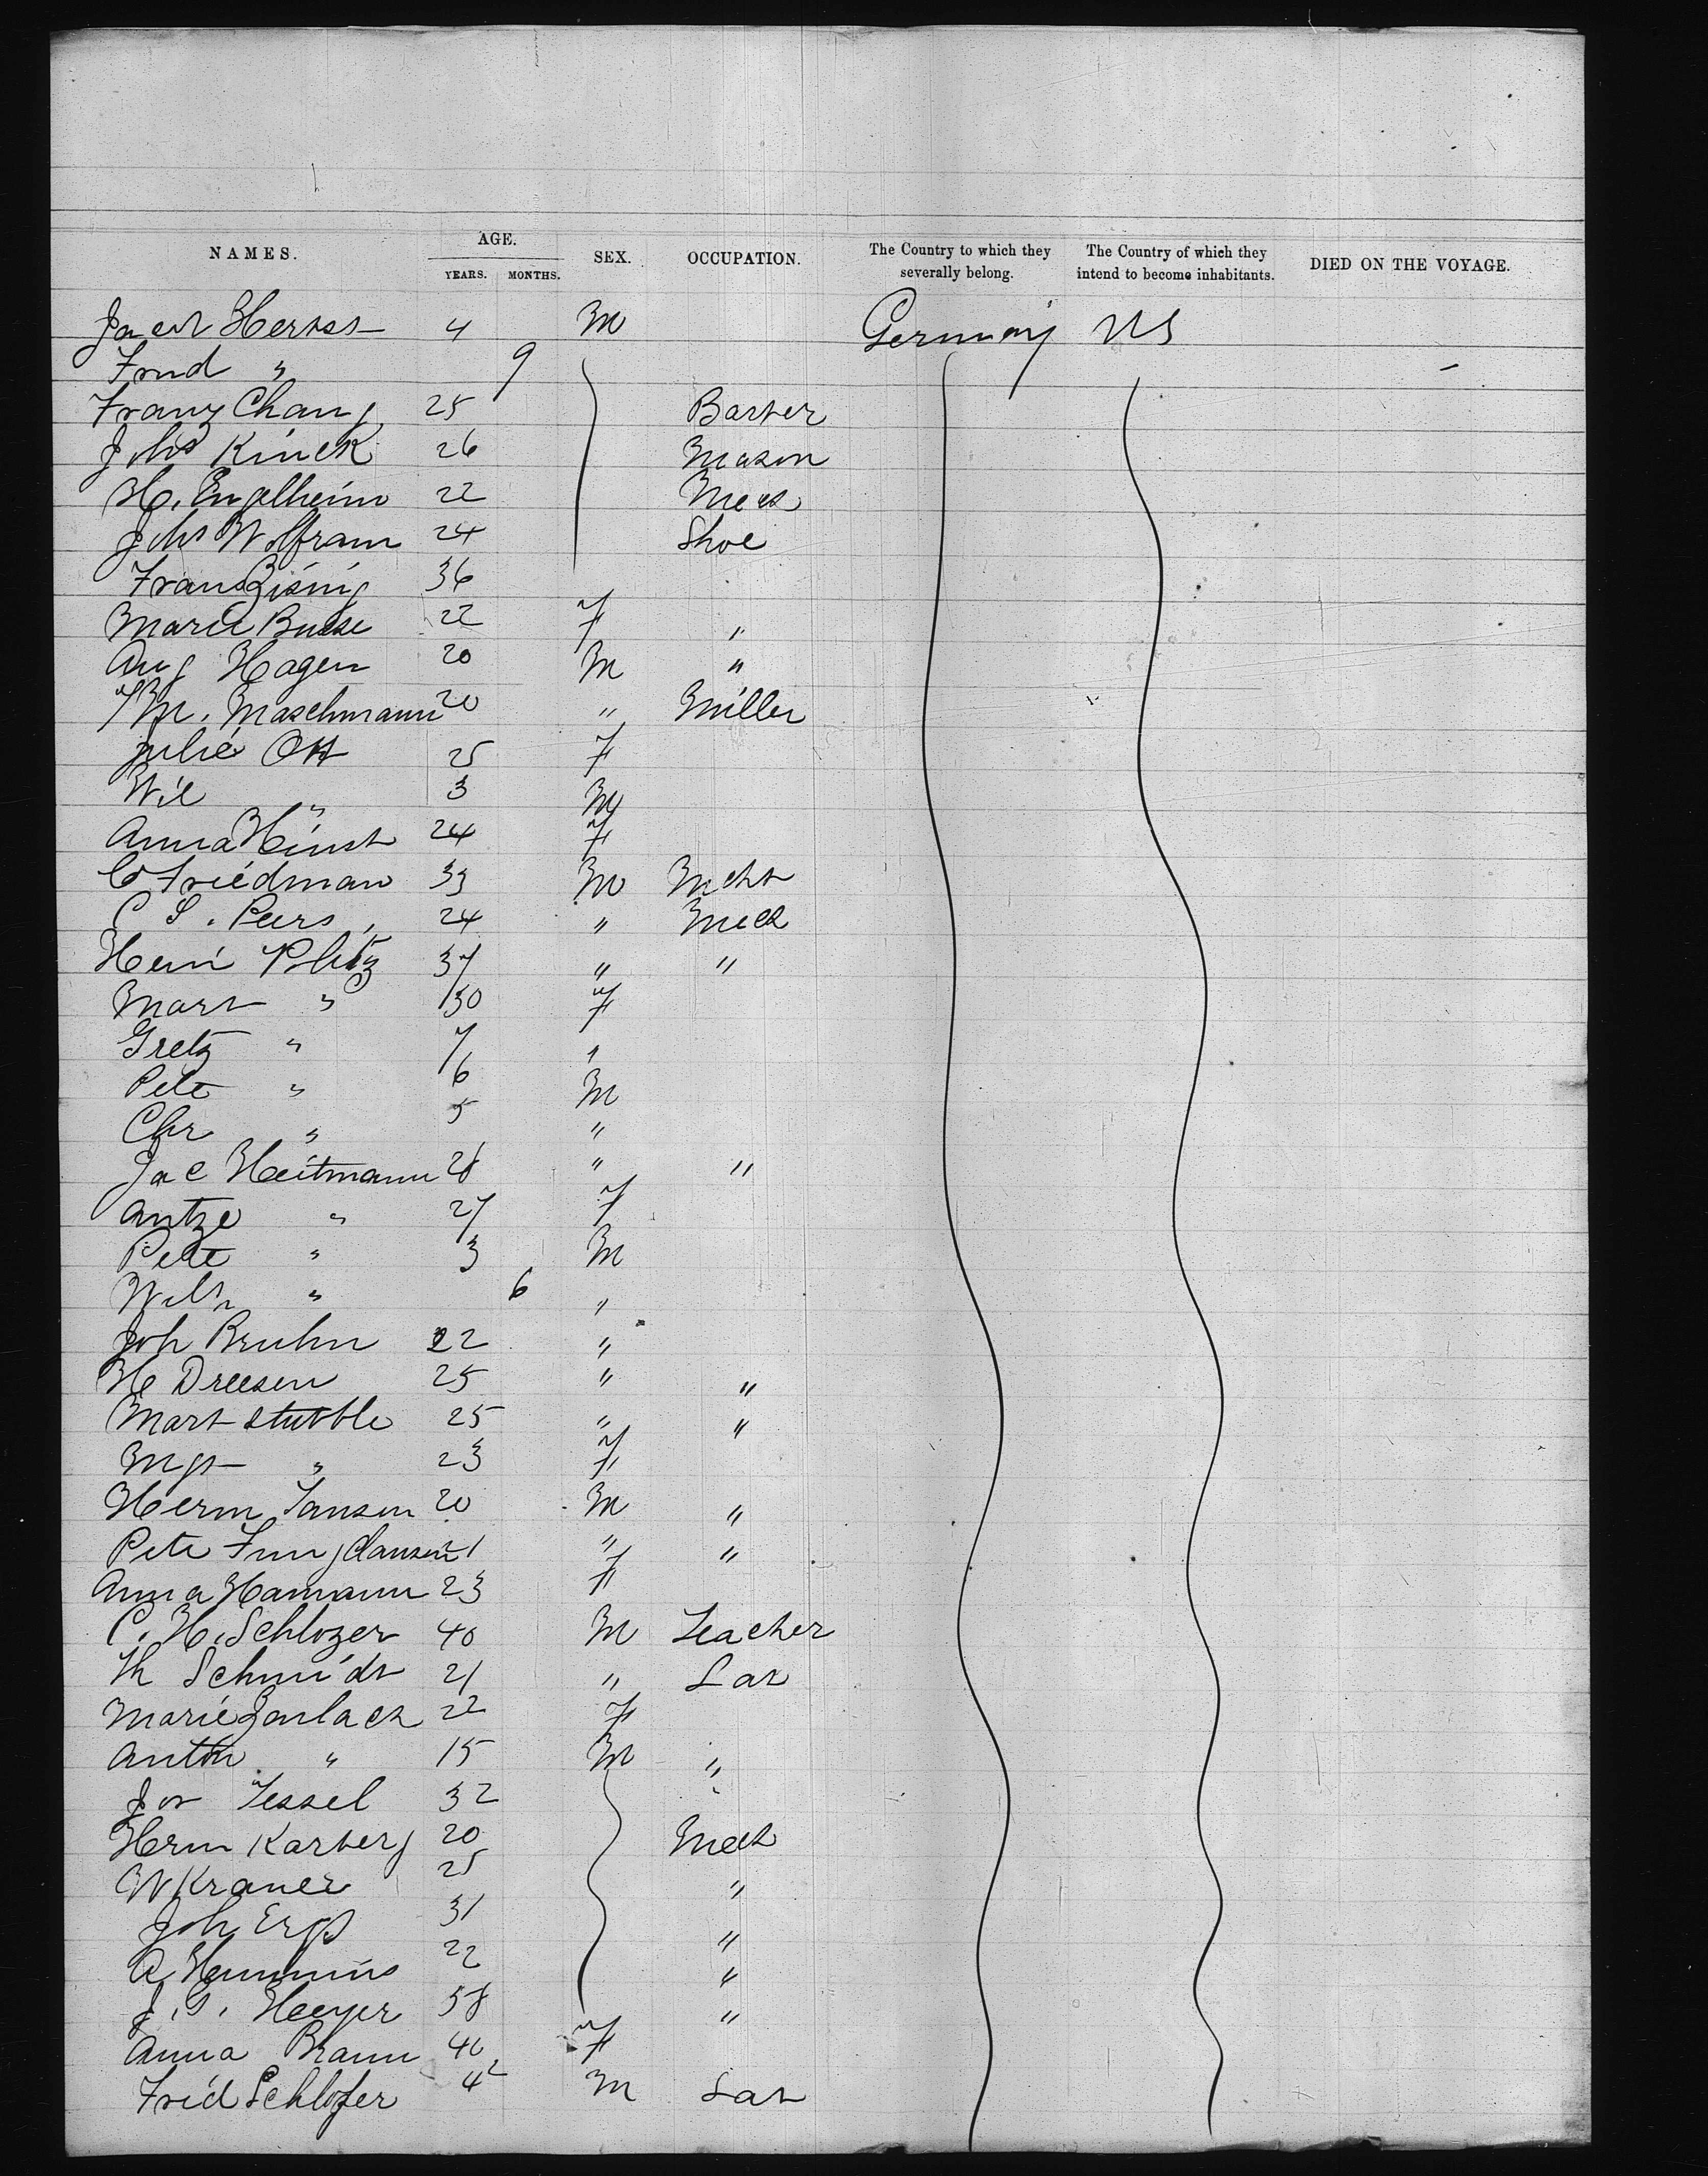 NAMES. AGE. SEX. OCCUPATION. The Country to which they severally belong. The Country of which they intend to become inhabitants. DIED ON THE VOYAGE.
YEARS. MONTHS.
Jacob 4 M Germany US
Fred " 9
Franz 25 Barber
Johs Kinck 26 Mason
H. Engelheim 22 Mech
Johs Wolfram 24 Shoe
Frans 36
Marie 22 F "
Aug Hagen 20 M "
Wm. Maschmann 20 " Miller
Julie Ott 25 F
Wil " 3 M
Anna 24 F
C Friedman 33 M Mcht
C S. Peers 24 " Mech
37 " "
Marg " 30 F
Gretz " 7 "
Pete " 6 M
Chr " 5 "
Jac Heitmann 28 " "
Antze " 27 F
Pete " 3 M
Wilh " 6 "
Joh Bruhn 22 "
H Dreesen 25 " "
Mart Stubble 25 " "
Mgt " 23 F
Herm Jansen 20 M "
Pete 21 " "
Anna Hamann 23 F
C. H. Schlozer 40 M Teacher
Th Schmidt 21 " Lab
Marie 22 F
Anton " 15 M "
Jos Tessel 32
Herm Karberg 20 Mech
W Kraner 25 "
Joh 31 "
A Hemmins 22 "
J. G. Heeyer 58 "
Anna Brann 40 F
Frid Schlofer 42 M Lab